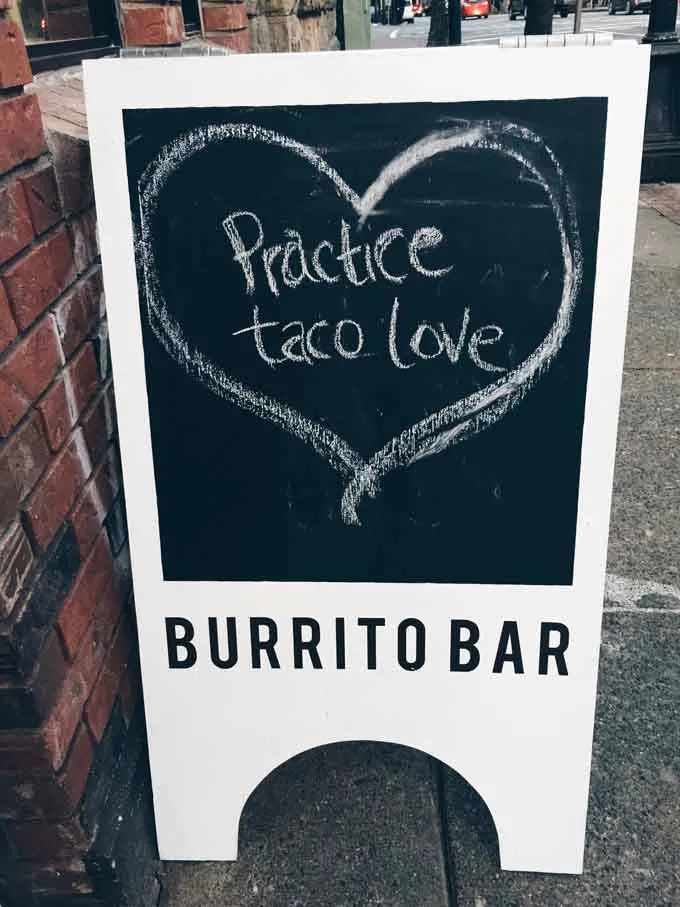 Practice
taco love
BURRITO BAR